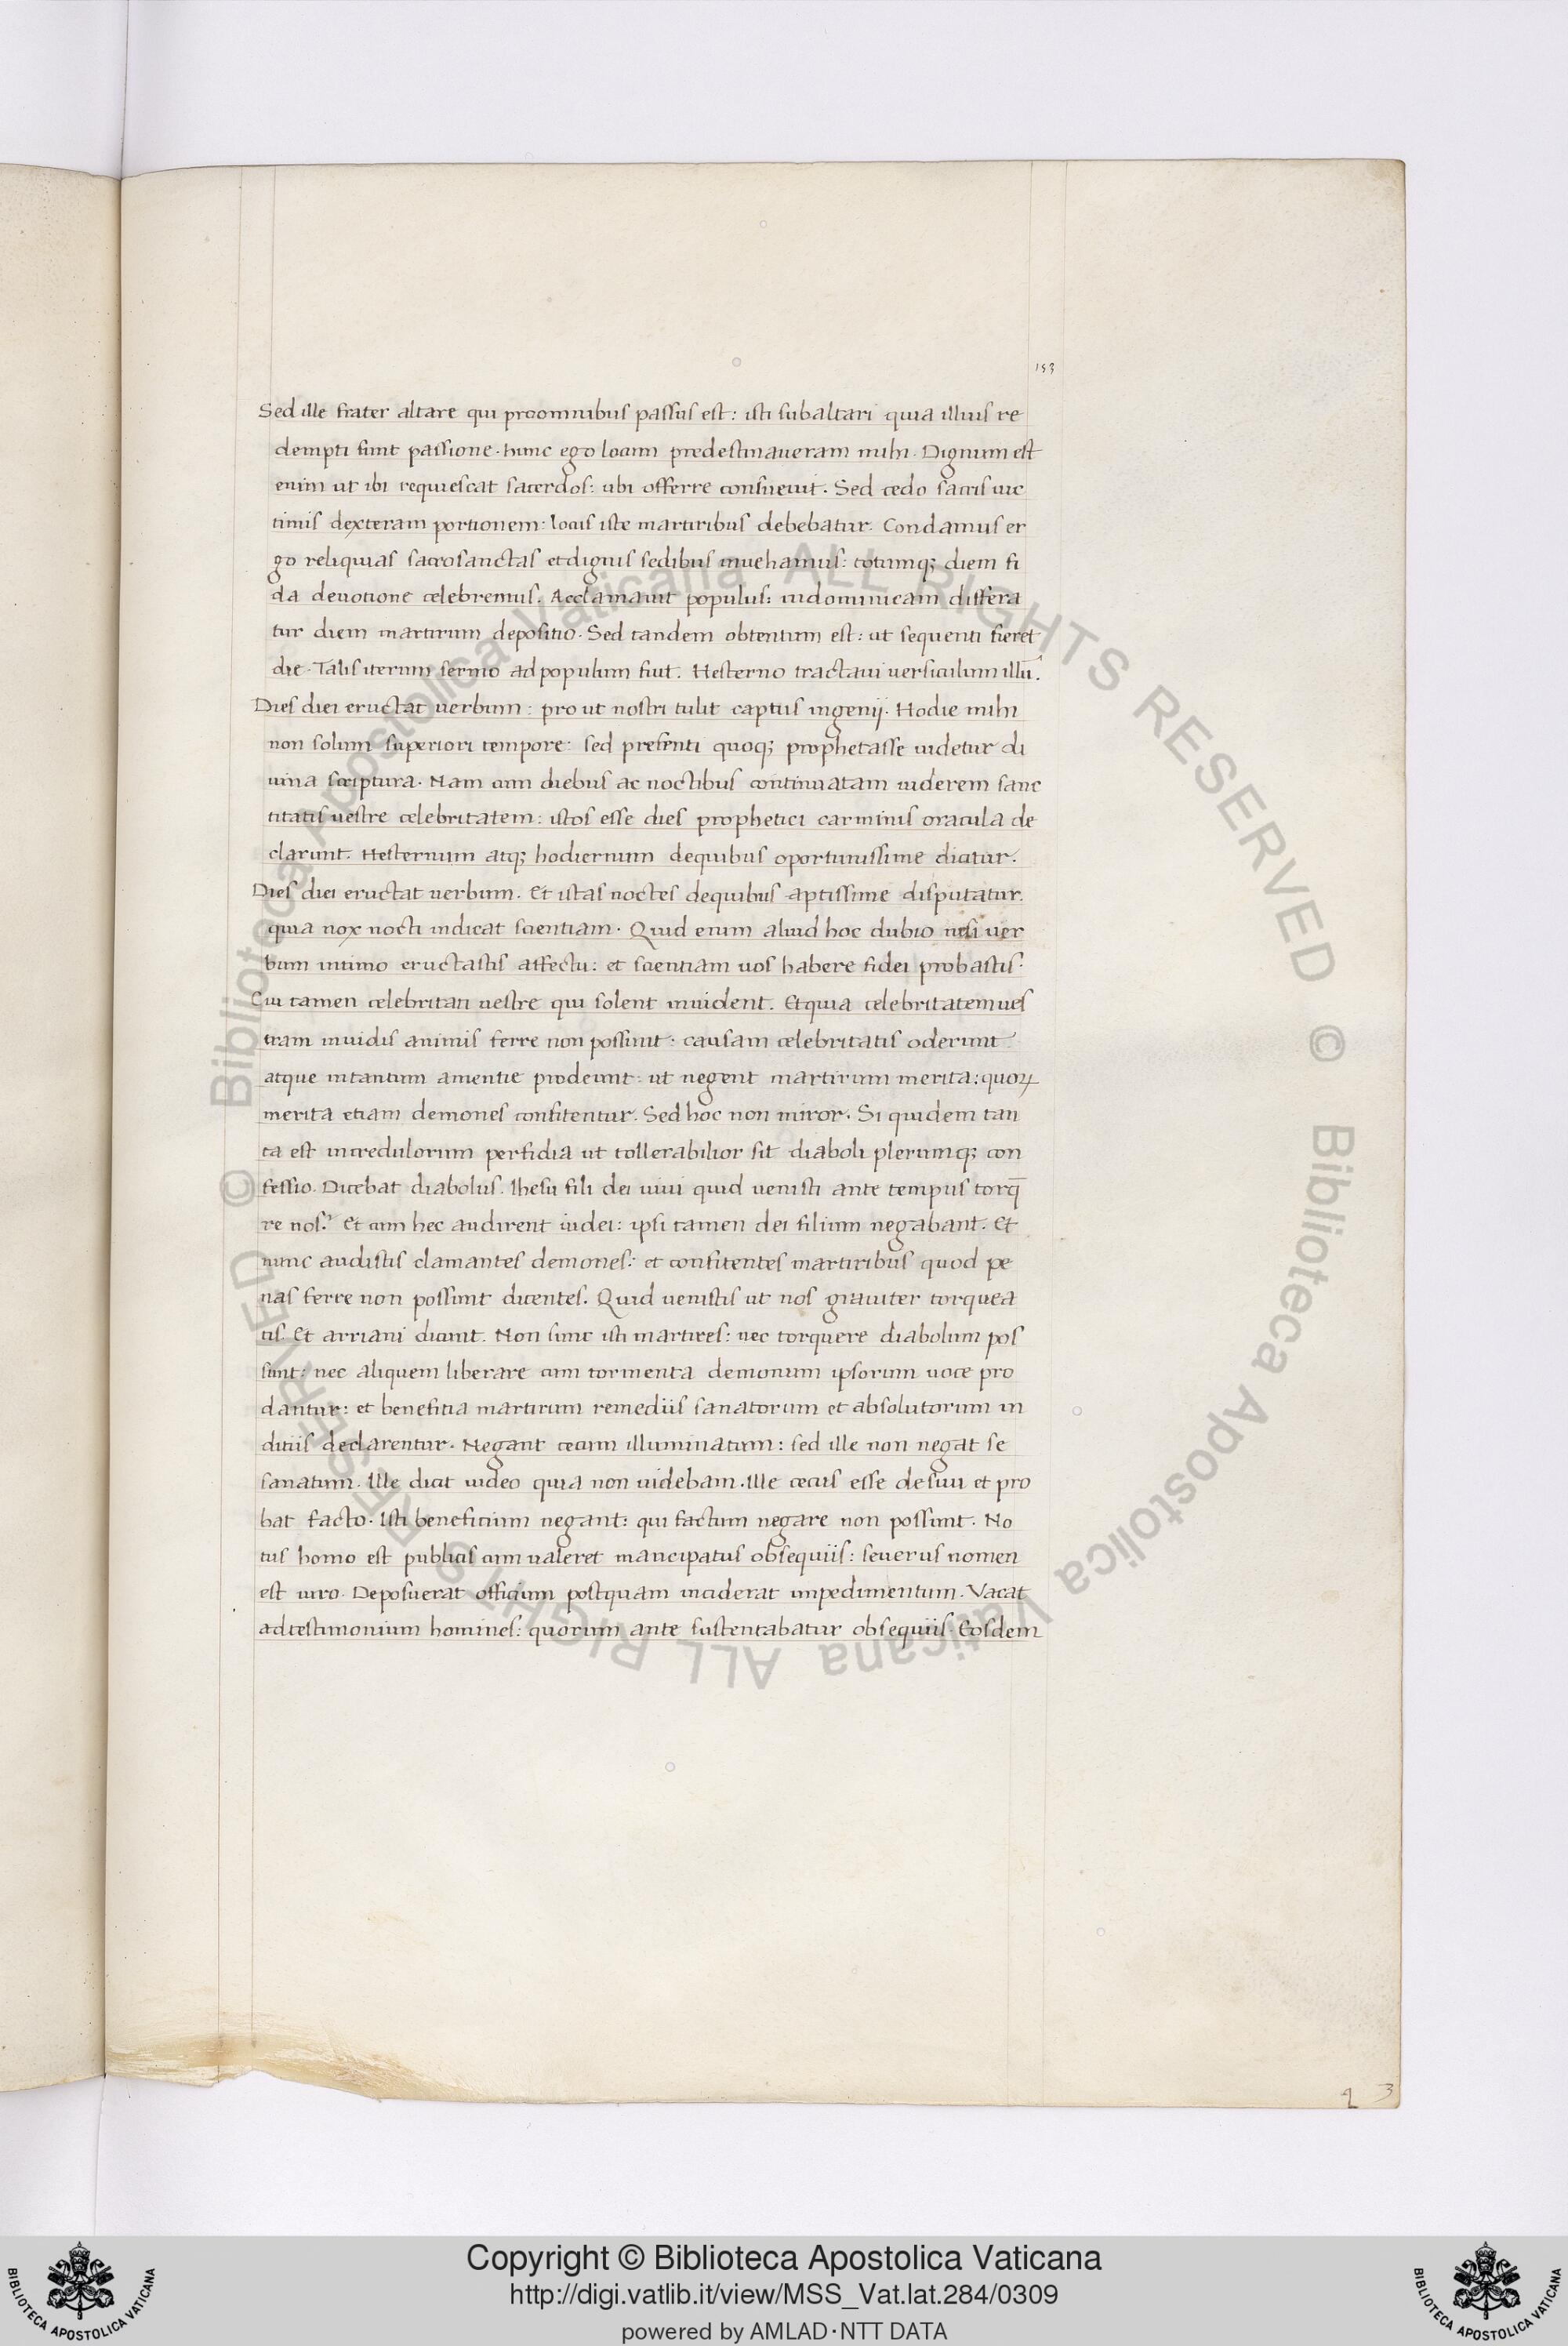 153
Sed ille frater altare qui proomnibus passus est: isti subaltari quia illius re
dempti sunt passione. hunc ego locum predestinaueram mihi. Dignum est
enim ut ibi requiescat sacerdos: ubi offerre consueuit. Sed cedo sacris uic
timis dexteram portionem: locus iste martiribus debebatur. Condamus er
go reliquias sacrosanctas etdignis sedibus inuehamus: totumq; diem fi
da deuotione celebremus. Acclamauit populus: indominicam differa
tur diem martirum depositio. Sed tandem obtentum est: ut sequenti fieret
die. Talis iterum sermo adpopulum fuit. Hesterno tractaui uersiculum illū.
Dies diei eructat uerbum: pro ut nostri tulit captus ingenij. Hodie mihi
non solum superiori tempore: sed presenti quoq; prophetasse uidetur di
uina scriptura. Nam cum diebus ac noctibus continuatam uiderem sanc
titatis uestre celebritatem: istos esse dies prophetici carminis oracula de
clarunt. Hesternum atq; hodiernum dequibus oportunissime dicitur.
Dies diei eructat uerbum. Et istas noctes dequibus aptissime disputatur.
quia nox nocti indicat scientiam. Quid enim aliud hoc dubio nisi uer
bum intimo eructastis affectu: et scientiam uos habere fidei probastis.
Cui tamen celebritati uestre qui solent inuident. Etquia celebritatemues
tram inuidis animis ferre non possunt: causam celebritatis oderunt
atque intantum amentie prodeunt: ut negent martirum merita: quoꝝ
merita etiam demones confitentur. Sed hoc non miror. Si quidem tan
ta est incredulorum perfidia ut tollerabilior sit diaboli plerumq; con
fessio. Dicebat diabolus. Ihesu fili dei uiui quid uenisti ante tempus torq̄
re nos? Et cum hec audirent iudei: ipsi tamen dei filium negabant. Et
nunc audistis clamantes demones: et confitentes martiribus quod pe
nas ferre non possunt dicentes. Quid uenistis ut nos grauiter torquea
tis. Et arriani dicunt. Non sunt isti martires: nec torquere diabolum pos
sunt: nec aliquem liberare cum tormenta demonum ipsorum uoce pro
dantur: et benefitia martirum remediis sanatorum et absolutorum in
ditiis declarentur. Negant cecum illuminatum: sed ille non negat se
sanatum. Ille dicit uideo quia non uidebam. Ille cecus esse desiui et pro
bat facto. Isti beneficium negant: qui factum negare non possunt. No
tus homo est publicis cum ualeret mancipatus obsequiis: seuerus nomen
est uiro. Deposuerat officium postquam inciderat impedimentum. Vacat
adtestimonium homines: quorum ante sustentabatur obsequiis. Eosdem
q 3
© Biblioteca Apostolica Vaticana ALL RIGHTS RESERVED © Biblioteca Apostolica Vaticana ALL RIGHTS RESERVED
Copyright © Biblioteca Apostolica Vaticana
http://digi.vatlib.it/view/MSS_Vat.lat.284/0309
powered by AMLAD·NTT DATA
BIBLIOTECA APOSTOLICA VATICANA
BIBLIOTECA APOSTOLICA VATICANA